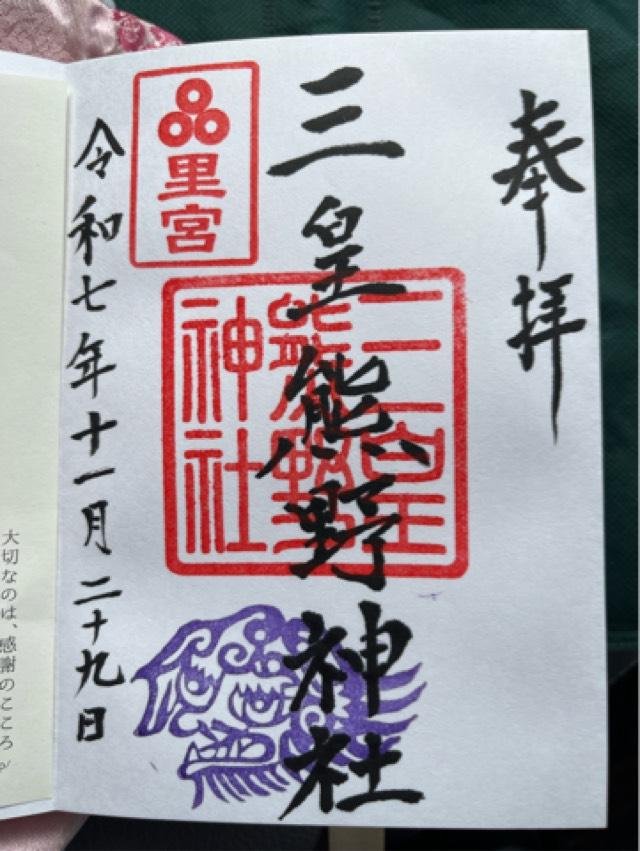 奉拝
三皇熊野神社
三皇熊野神社
里宮
令和七年十一月二十九日
大切なのは、感謝のこころ